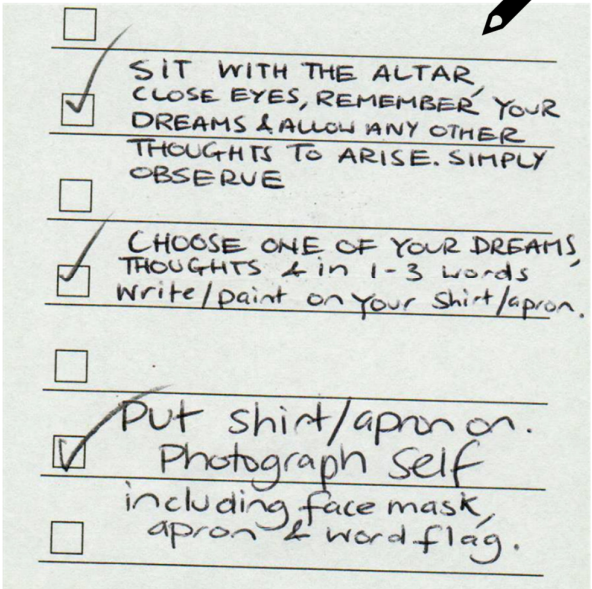 SIT WITH THE ALTAR,
CLOSE EYES, REMEMBER YOUR
DREAMS & ALLOW ANY OTHER
THOUGHTS TO ARISE. SIMPLY
OBSERVE
CHOOSE ONE OF YOUR DREAMS,
THOUGHTS & in 1-3 words
write/paint on your shirt/apron.
Put shirt/apron on.
Photograph self
including face mask,
apron & word flag.